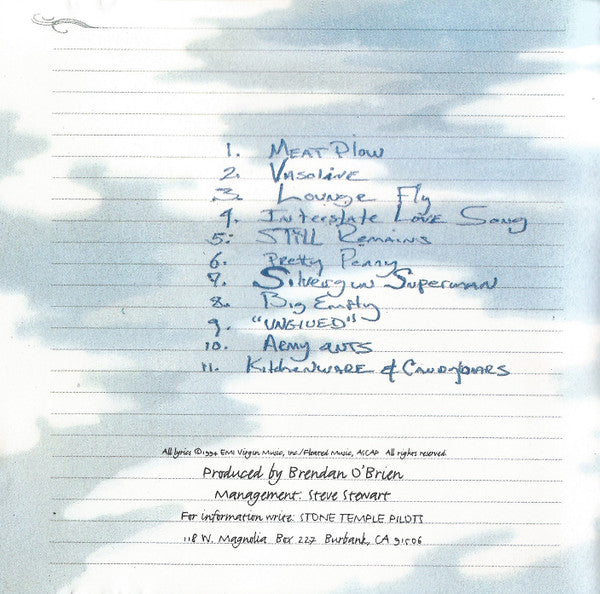 1. Meat Plow
2. Vasoline
3. Lounge Fly
4. Interstate Love Song
5. Still Remains
6. Pretty Penny
7. Silvergun Superman
8. Big Empty
9. "UNGLUED"
10. Army ants
11. Kitchenware & Candybars
All lyrics ©1994 EMI Virgin Music, Inc/Floated Music, ASCAP All rights reserved.
Produced by Brendan O'Brien
Management: Steve Stewart
For information write: STONE TEMPLE PILOTS
118 W. Magnolia Box 227 Burbank, CA 91506